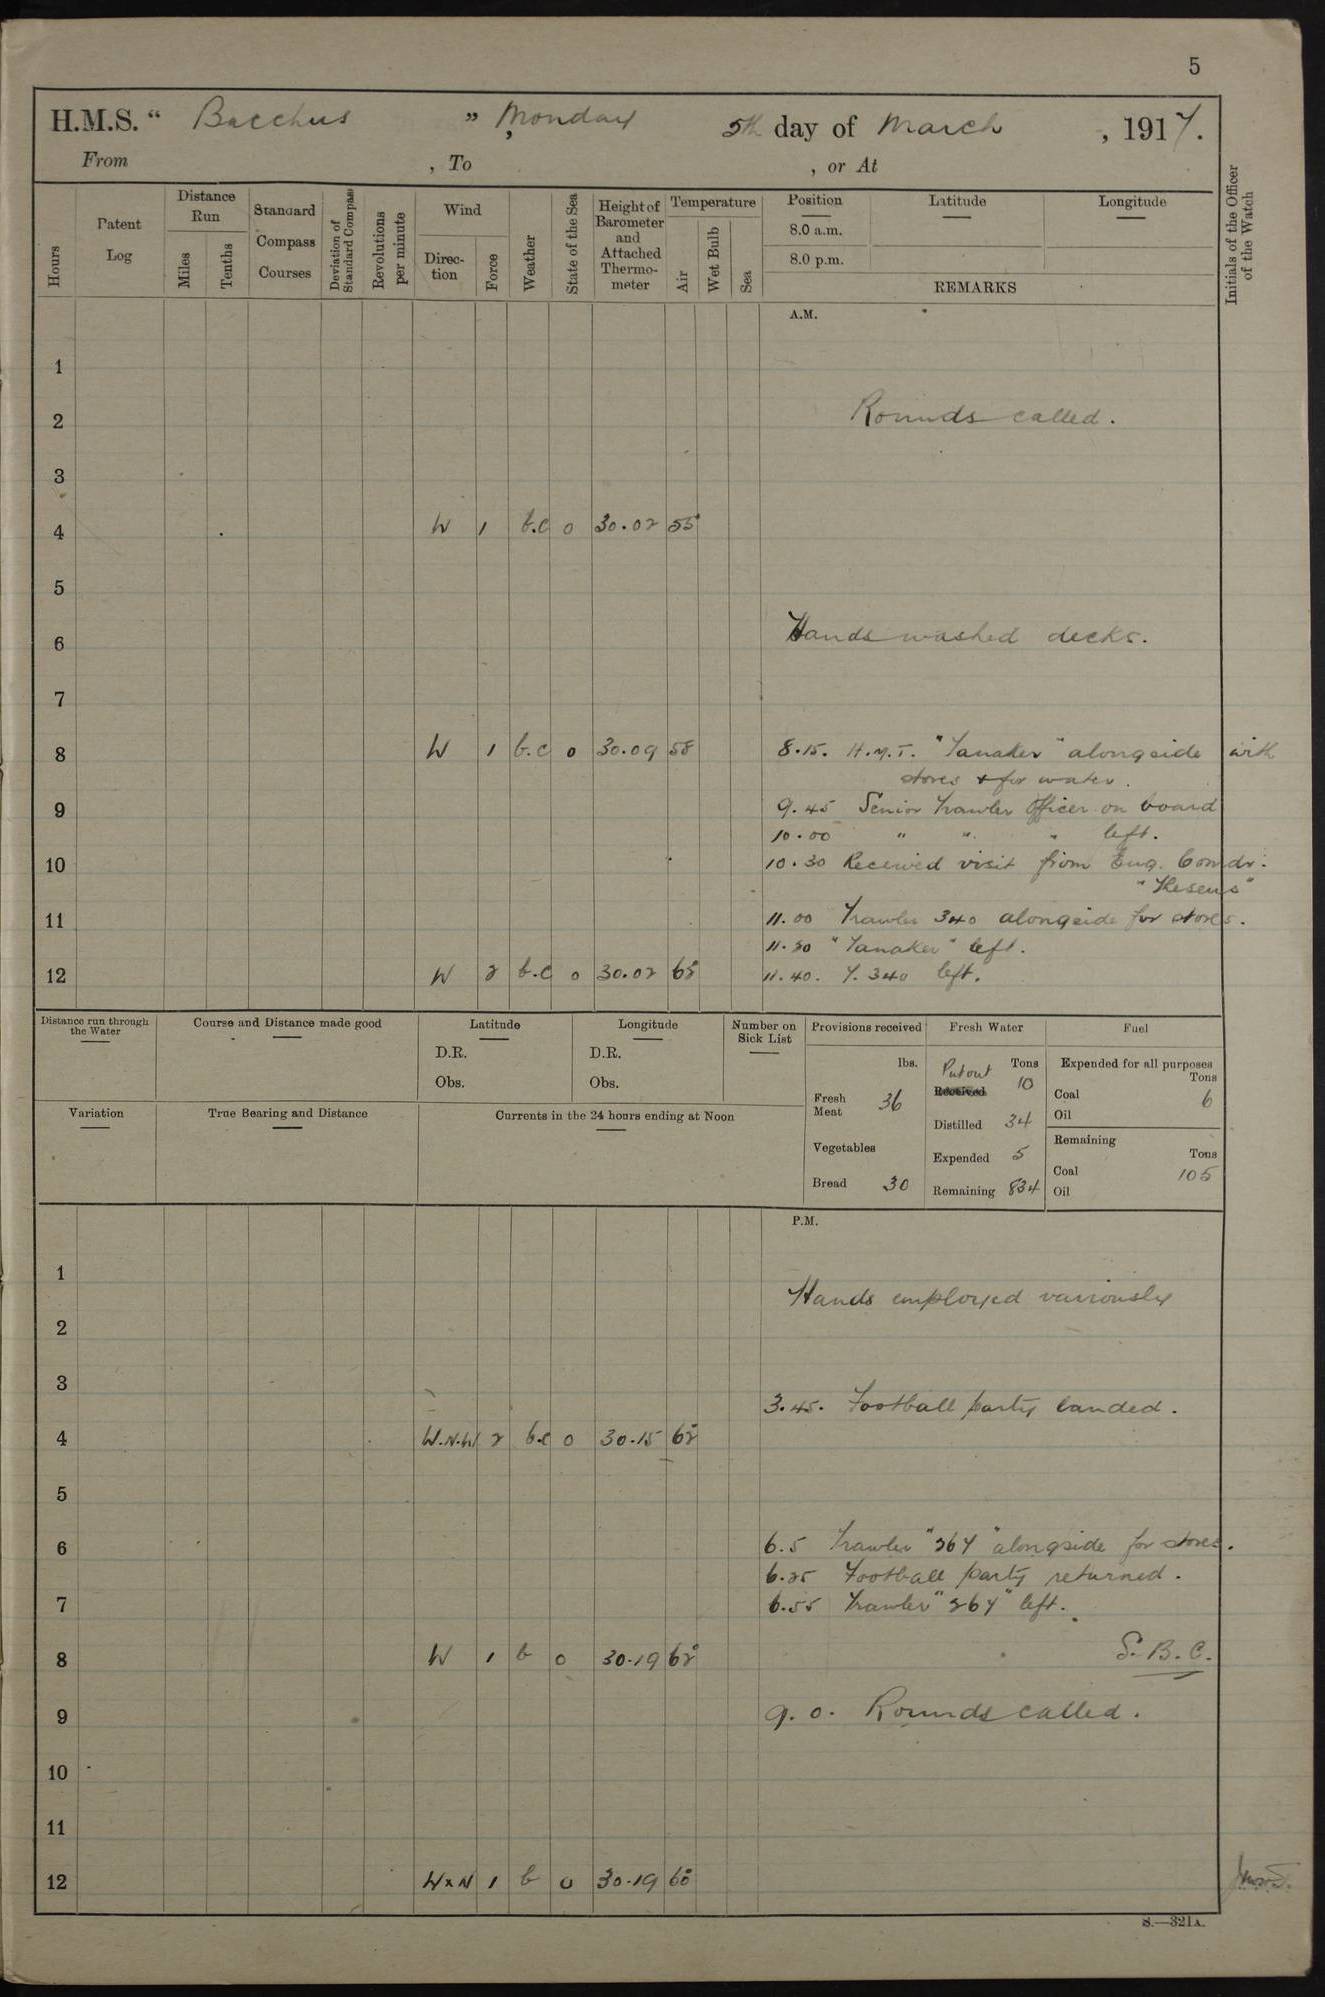 5
H.M.S. " Bacchus " , Monday 5th day of March , 1917.
From , To , or At
Hours
Patent Log
Distance Run
Miles
Tenths
Standard Compass Courses
Deviation of Standard Compass
Revolutions per minute
Wind
Direction
Force
Weather
State of the Sea
Height of Barometer and Attached Thermometer
Temperature
Air
Wet Bulb
Sea
Position Latitude Longitude
8.0 a.m.
8.0 p.m.
REMARKS
Initials of the Officer of the Watch
A.M.
1
2 Rounds called.
3
4 W 1 b.c 0 30.02 55°
5
6 Hands washed decks.
7
8 W 1 b.c 0 30.09 58 8.15. H.M.T. "Tanaker" alongside with
stores & for water.
9 9.45 Senior Trawler Officer on board
10.00 " " " left.
10 10.30 Received visit from Eng. Comdr.
"Theseus"
11 11.00 Trawler 340 alongside for stores.
11.20 "Tanaker" left.
12 W 2 b.c 0 30.02 62° 11.40. T. 340 left.
Distance run through the Water
Course and Distance made good
Latitude
D.R.
Obs.
Longitude
D.R.
Obs.
Number on Sick List
Provisions received
lbs.
Fresh Meat 36
Vegetables
Bread 30
Fresh Water
Put out Tons
Received 10
Distilled 34
Expended 5
Remaining 834
Fuel
Expended for all purposes
Tons
Coal 6
Oil
Remaining
Tons
Coal 105
Oil
Variation
True Bearing and Distance
Currents in the 24 hours ending at Noon
P.M.
1
Hands employed variously
2
3
3.45. Football party landed.
4 W.N.W 2 b.c 0 30.15 62°
5
6 6.5 Trawler "267" alongside for stores.
6.25 Football party returned.
7 6.55 Trawler "267" left.
8 W 1 b 0 30.19 62° S.B.C.
9 9.0. Rounds called.
10
11
12 WxN 1 b 0 30.19 60°
S.—321A.